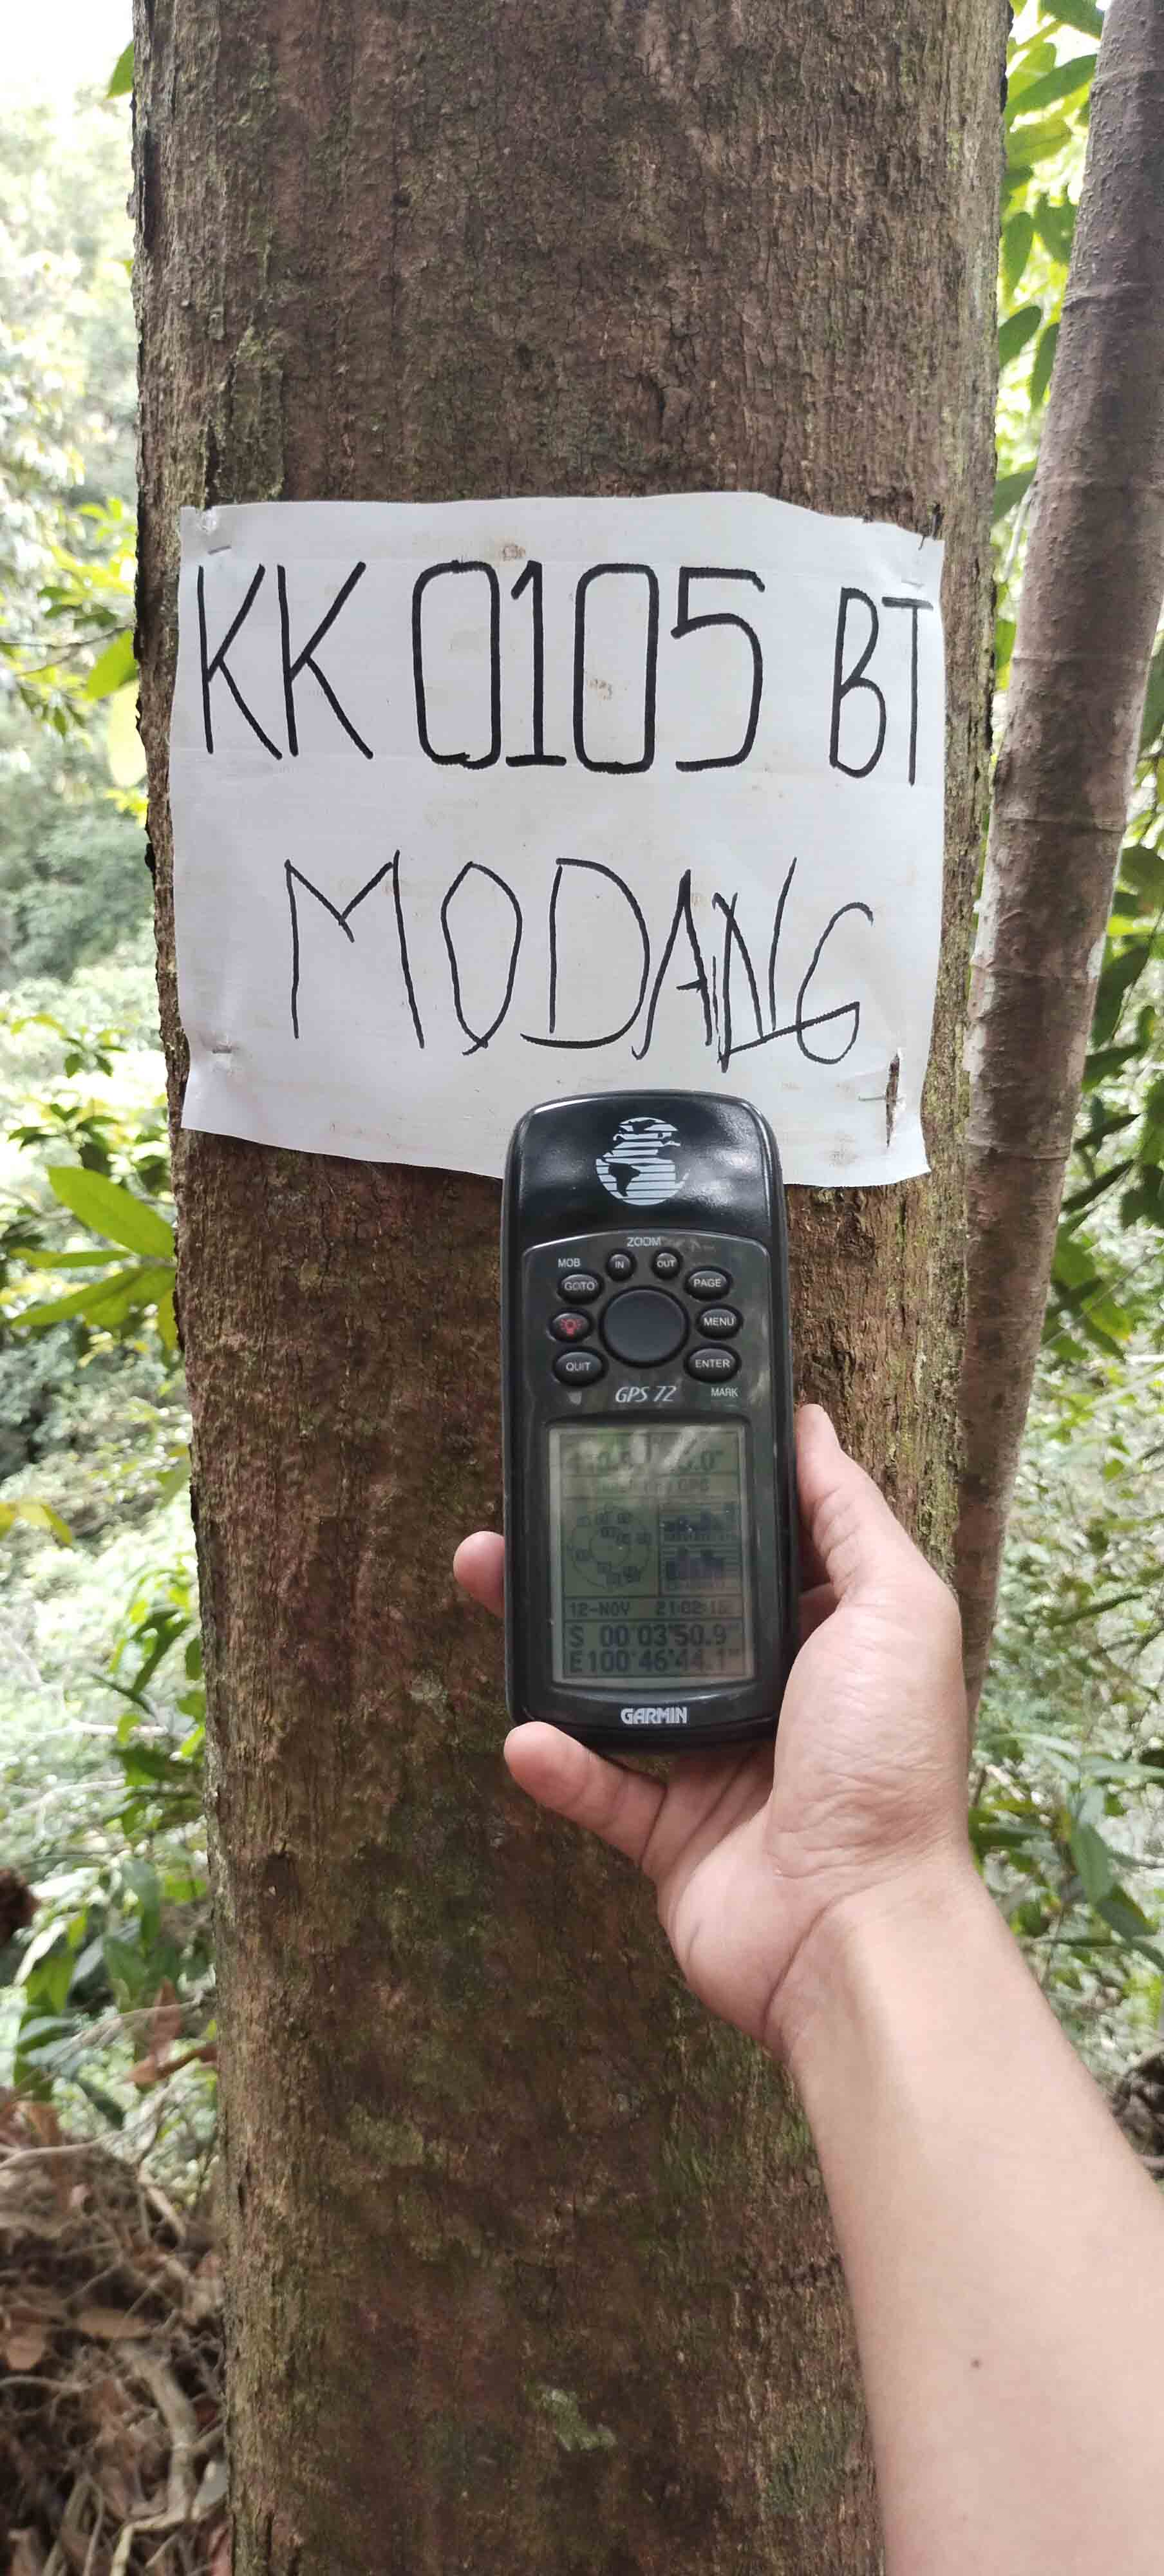 KK 0105 BT
MODANG
ZOOM
MOB
IN
OUT
GOTO
PAGE
MENU
QUIT
ENTER
GPS 72
MARK
GPS
12-NOV 21:02:15
S 00°03'50.9"
E100°46'44.1"
GARMIN